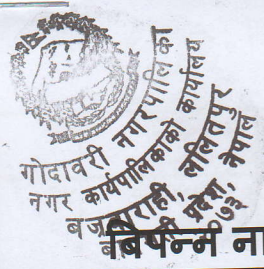 गोदावरी नगरपालिका
नगर कार्यपालिकाको कार्यालय
बज्रवाराही, ललितपुर
प्रदेश, नेपाल
७३
विपन्न ना